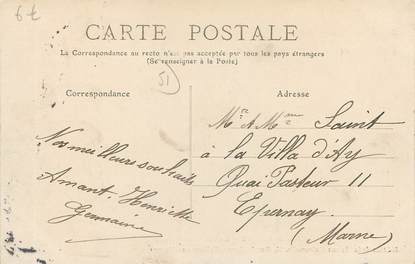 6 €
CARTE POSTALE
La Correspondance au recto n'est pas acceptée par tous les pays étrangers
(Se renseigner à la Poste)
51
Correspondance
Nos meilleurs souhaits
Amant. Henriette
Germaine
Adresse
Mr & Mme Saint
à la Villa d'Ay
Quai Pasteur 11
Epernay
(Marne)